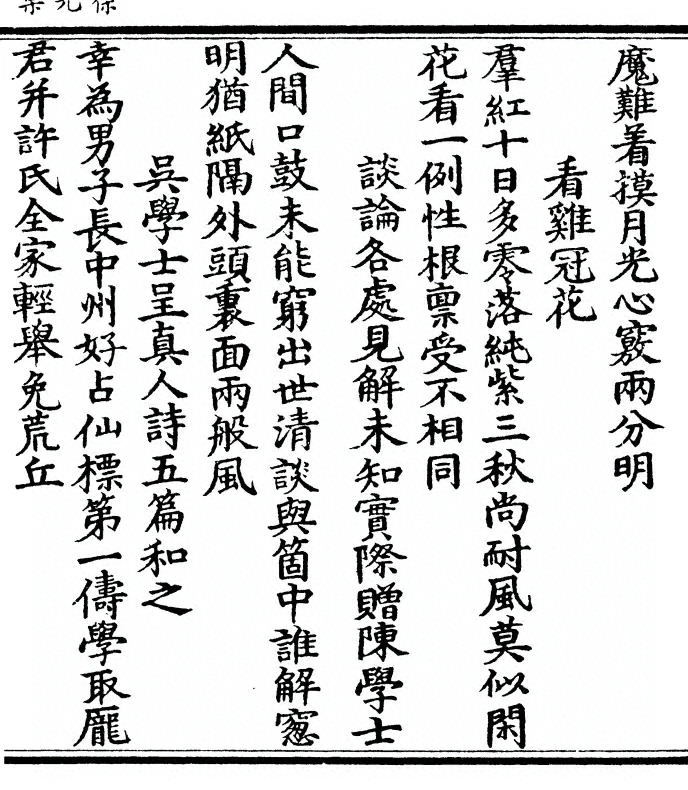 魔難着摸月光心竅兩分明
看雞冠花
羣紅十日多零落純紫三秋尚耐風莫似閑
花看一例性根禀受不相同
談論各處見解未知實際贈陳學士
人間口鼓未能窮出世清談與箇中誰解窻
明猶紙隔外頭裏面兩般風
吳學士呈真人詩五篇和之
幸為男子長中州好占仙標第一儔學取龐
君并許氏全家輕舉免荒丘